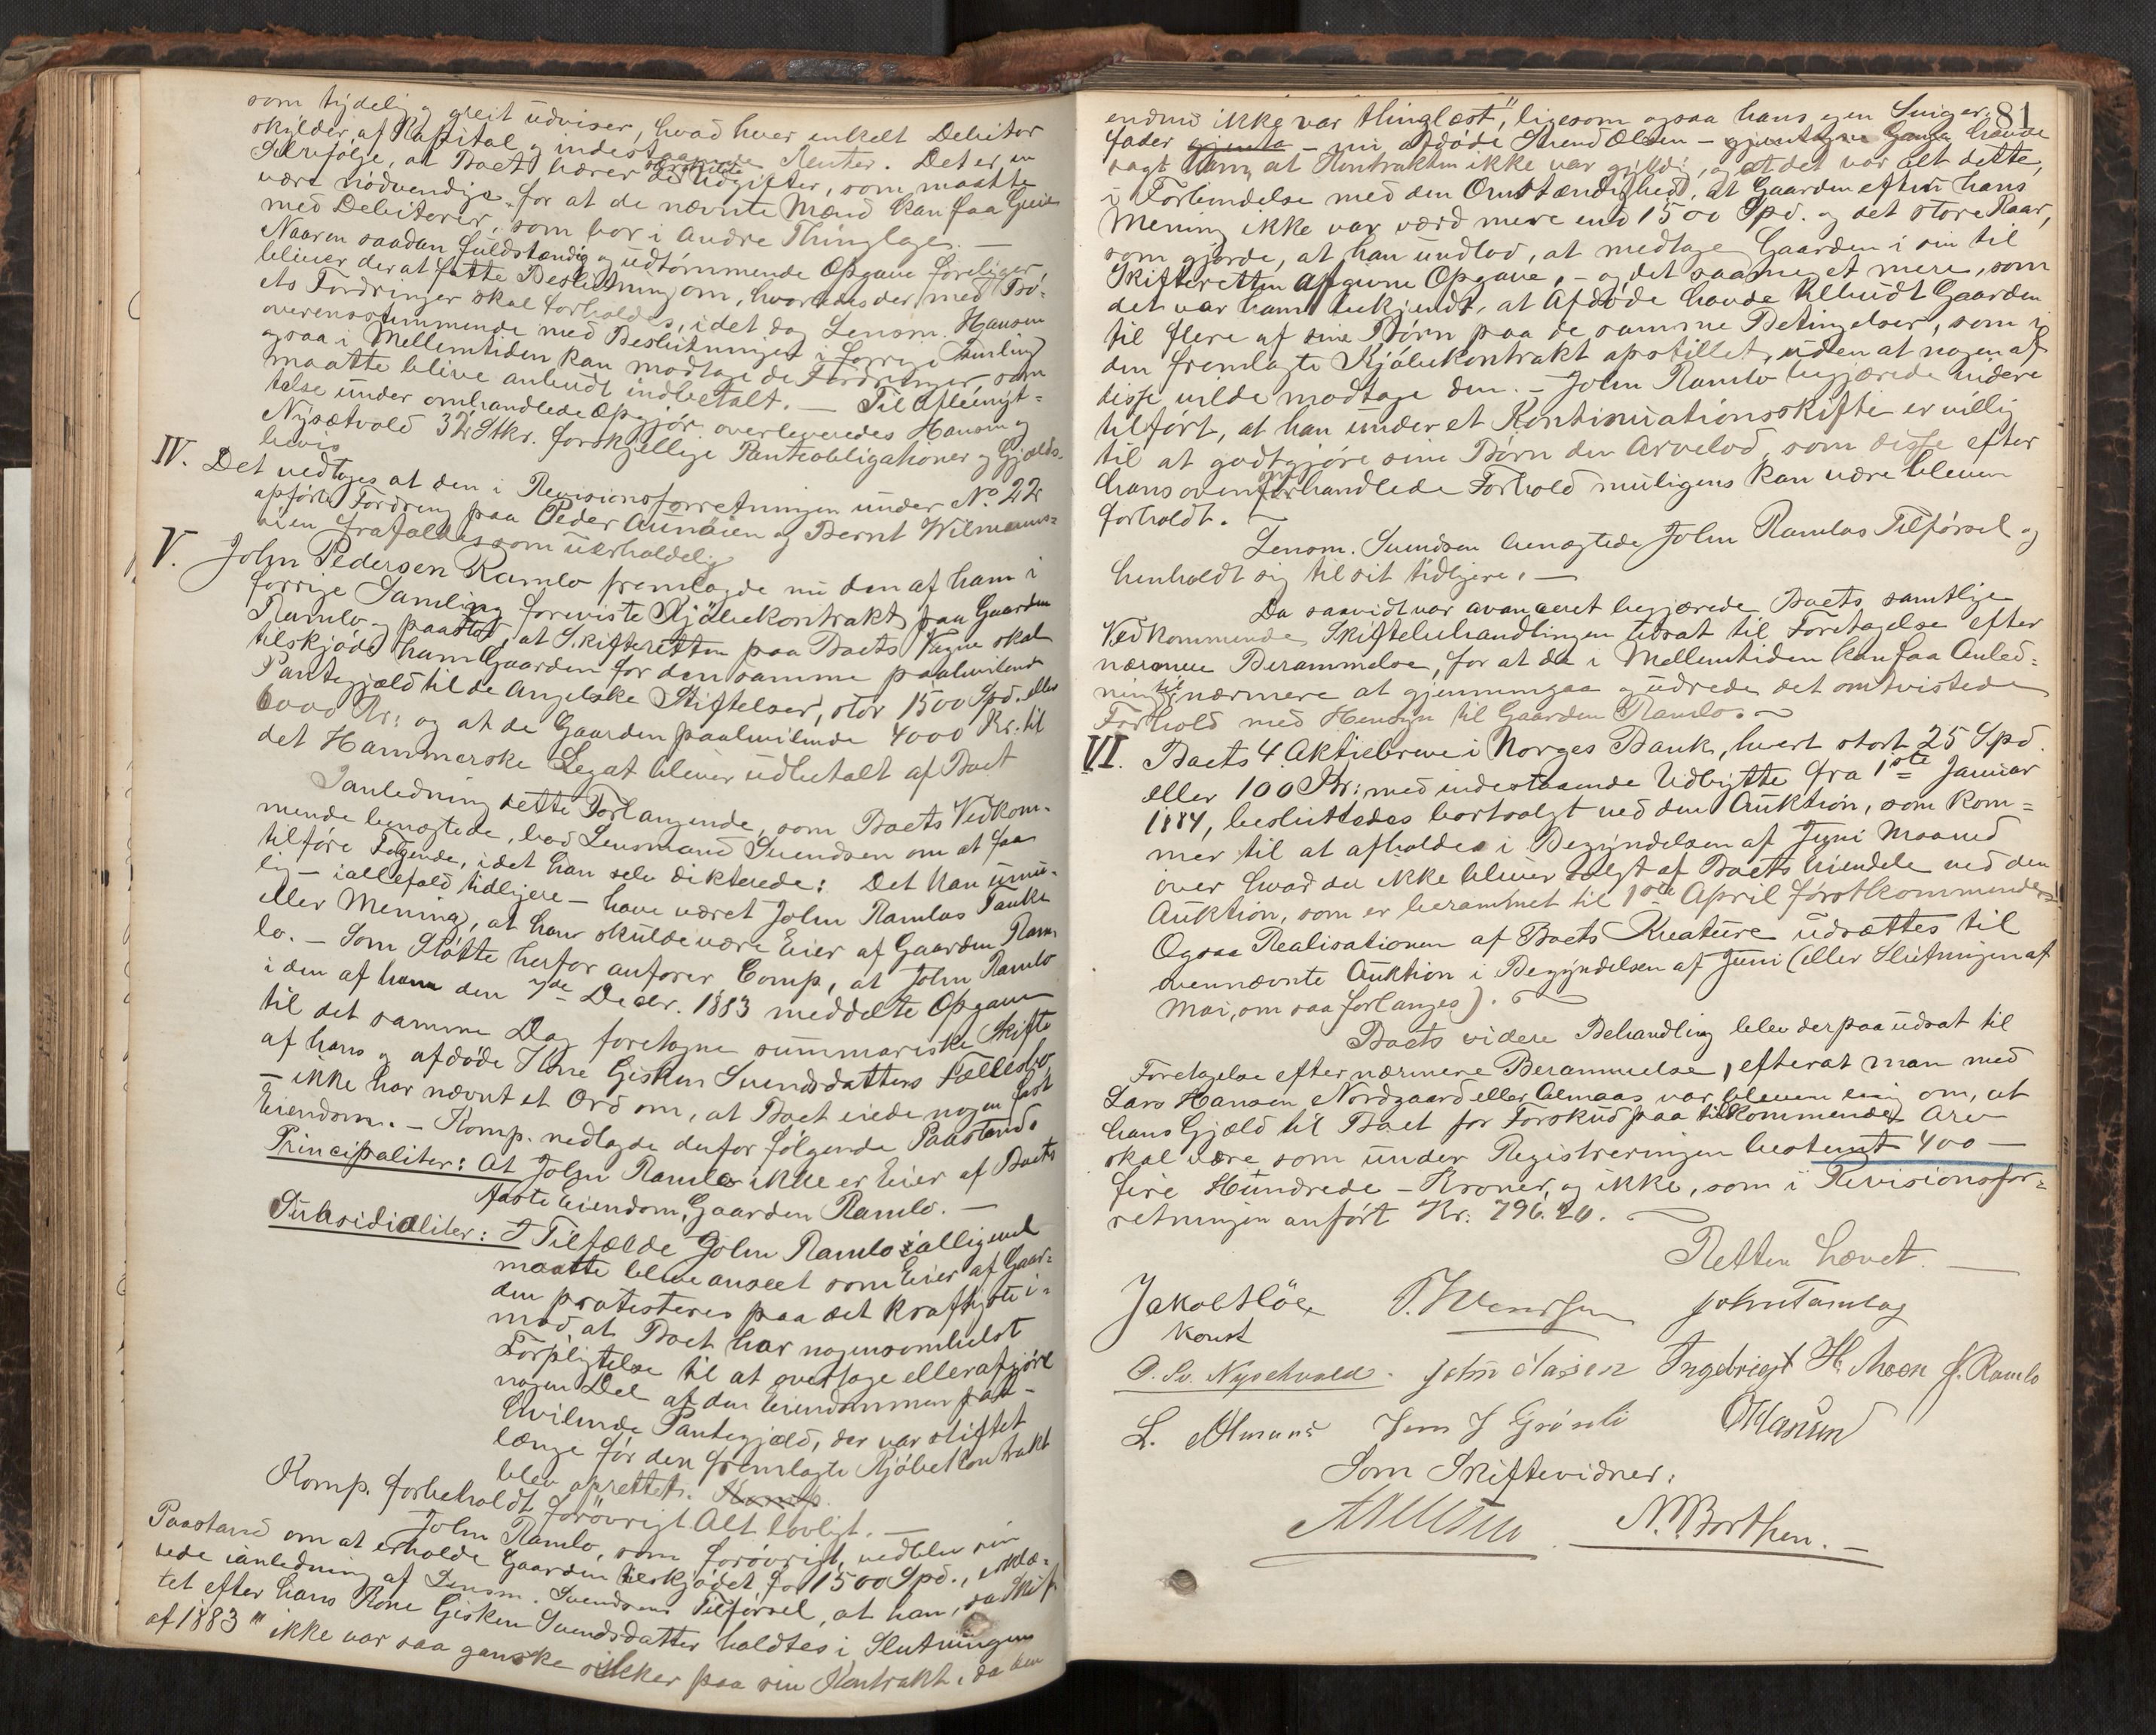 som tydelig og greit udviser, hvad hver enkelt Debitor
skylder af Kapital og indestaaende Renter. Det er en
Selvfølge, at Boet bærer de særskilte Udgifter, som maatte
være nødvendige for at de nævnte Mænd kan faa Greie
med Debitorer, som bor i andre Thinglage. —
Naar en saadan fuldstændig og udtømmende Opgave foreligger,
bliver der at fatte Beslutning om, hvorledes der med Bo-
ets Fordringer skal forholdes, idet dog Lensm. Hansen
overensstemmende med Beslutningen i forrige Samling
ogsaa i Mellemtiden kan modtage de Fordringer, som
maatte blive anbudt indbetalt. — Til Afbenyt-
telse under omhandlede Opgjør overleveredes Hansen og
Nysætvold 32 Stkr. forskjellige Panteobligationer og Gjælds-
bevis
IV. Det vedtoges at den i Revisionsforretningen under No 22
opførte Fordring paa Peder Aunøien og Bernt Wilmanns-
øien frafaldes som uerholdelig
V. John Pedersen Ramlo fremlagde nu den af ham i
forrige Samling foreviste Kjøbekontrakt paa Gaarden
Ramlo og paastod, at Skifteretten paa Boets Vægne skal
tilskjøde ham Gaarden for den samme paahvilende
Pantegjæld til de Angelske Stiftelser, stor 1500 Spd. eller
6000 Kr: og at de Gaarden paahvilende 4000 Kr. til
det Hammerske Legat bliver udbetalt af Boet
I anledning dette Forlangende, som Boets Vedkom-
mende benegtede, bad Lensmand Svendsen om at faa
tilføre Følgende, idet han selv dikterede: Det kan umu-
lig — iallefald tidligere — have været John Ramlos Tanke
eller Mening, at han skulde være Eier af Gaarden Ram-
lo. — Som Støtte herfor anfører Comp, at John Ramlo
i den af ham den 7de Decbr. 1883 meddelte Opgave
til det samme Dag foretagne summariske Skifte
af hans og afdøde Kone Gisken Svendsdatters Fællesbo
— ikke har nævnt et Ord om, at Boet eiede nogen fast
Eiendom. — Komp. nedlagde derfor følgende Paastand:
Principaliter: At John Ramlo ikke er Eier af Boets
faste Eiendom, Gaarden Ramlo. —
Subsidialiter: I Tilfælde John Ramlo ialligevel
maatte blive anseet som Eier af Gaar-
den protesteres paa det kraftigste i-
mod at Boet har nogensomhelst
Forpligtelse til at overtage eller afgjøre
nogen Del af den Eiendommen paa-
hvilende Pantegjæld, der var stiftet
længe før den fremlagte Kjøbekontrakt
blev oprettet. Komp.
Komp. forbeholdt forøvrigt Alt lovligt. —
John Ramlo, som forøvrigt, vedblev sin
Paastand om at erholde Gaarden tilskjødet for 1500 Spd., erklæ-
rede ianledning af Lensm. Svendsens Tilførsel, at han, da Skif-
tet efter hans Kone Gisken Svendsdatter holdtes i Slutningen
af 1883 " ikke var saa ganske sikker paa sin Kontrakt, da den
81
endnu ikke var thinglæst", ligesom ogsaa hans egen Sviger-
fader gjenta - nu afdøde Svend Olsen - gjentagne Gange havde
sagt ham, at Kontrakten ikke var gyldig, og at det var alt dette,
i Forbindelse med den Omstændighed, at Gaarden efter hans
Mening ikke var værd mere end 1500 Spd. og det store Kaar,
som gjorde, at han undlod, at medtage Gaarden i sin til
Skifteretten afgivne Opgave, — og det saameget mere, som
det var ham bekjendt, at Afdøde havde tilbudt Gaarden
til flere af sine Børn paa de samme Betingelser, som i
den fremlagte Kjøbekontrakt opstillet, uden at nogen af
disse vilde modtage den. — John Ramlo begjærede videre
tilført, at han under et Kontinuationsskifte er villig
til at godtgjøre sine Børn den Arvelod, som disse efter
hans ovenomhandlede Forhold muligens kan være bleven
forholdt. —
Lensm. Svendsen benegtede John Ramlos Tilførsel og
henholdt sig til sit tidligere. —
Da saavidt var avanceret begjærede Boets samtlige
Vedkommende Skiftebehandlingen udsat til Foretagelse efter
nærmere Berammelse, for at de i Mellemtiden kan faa Anled-
ning til nærmere at gjennemgaa og udrede det omtvistede
Forhold med Hensyn til Gaarden Ramlo. —
VI. Boets 4 Aktiebreve i Norges Bank, hvert stort 25 Spd.
eller 100 Kr: med indestaaende Udbytte fra 1ste Januar
1884, besluttedes bortsolgt ved den Auktion, som kom-
mer til at afholdes i Begyndelsen af Juni Maaned
over hvad der ikke bliver solgt af Boets Eiendele ved den
Auktion, som er berammet til 1ste April førstkommende.
Ogsaa Realisationen af Boets Kreature udsættes til
ovennævnte Auktion i Begyndelsen af Juni (eller Slutningen af
Mai, om saa forlanges). —
Boets videre Behandling blev derpaa udsat til
Foretagelse efter nærmere Berammelse, efterat man med
Lars Hansen Nordgaard eller Almaas var bleven enig om, at
hans Gjæld til Boet for Forskud paa tilkommende Arv
skal være som under Registreringen bestemt 400 —
fire Hundrede — Kroner, og ikke, som i Revisionsfor-
retningen anført Kr: 796.20. —
Retten hævet. —
Jakob Høe
Konst
O. Sv. Nysetvold. Ingebrigt H. Moen J. Ramlo
L. Almaas Jens J Grøseli OHansen
Som Skiftevidner:
N. Borthen. —